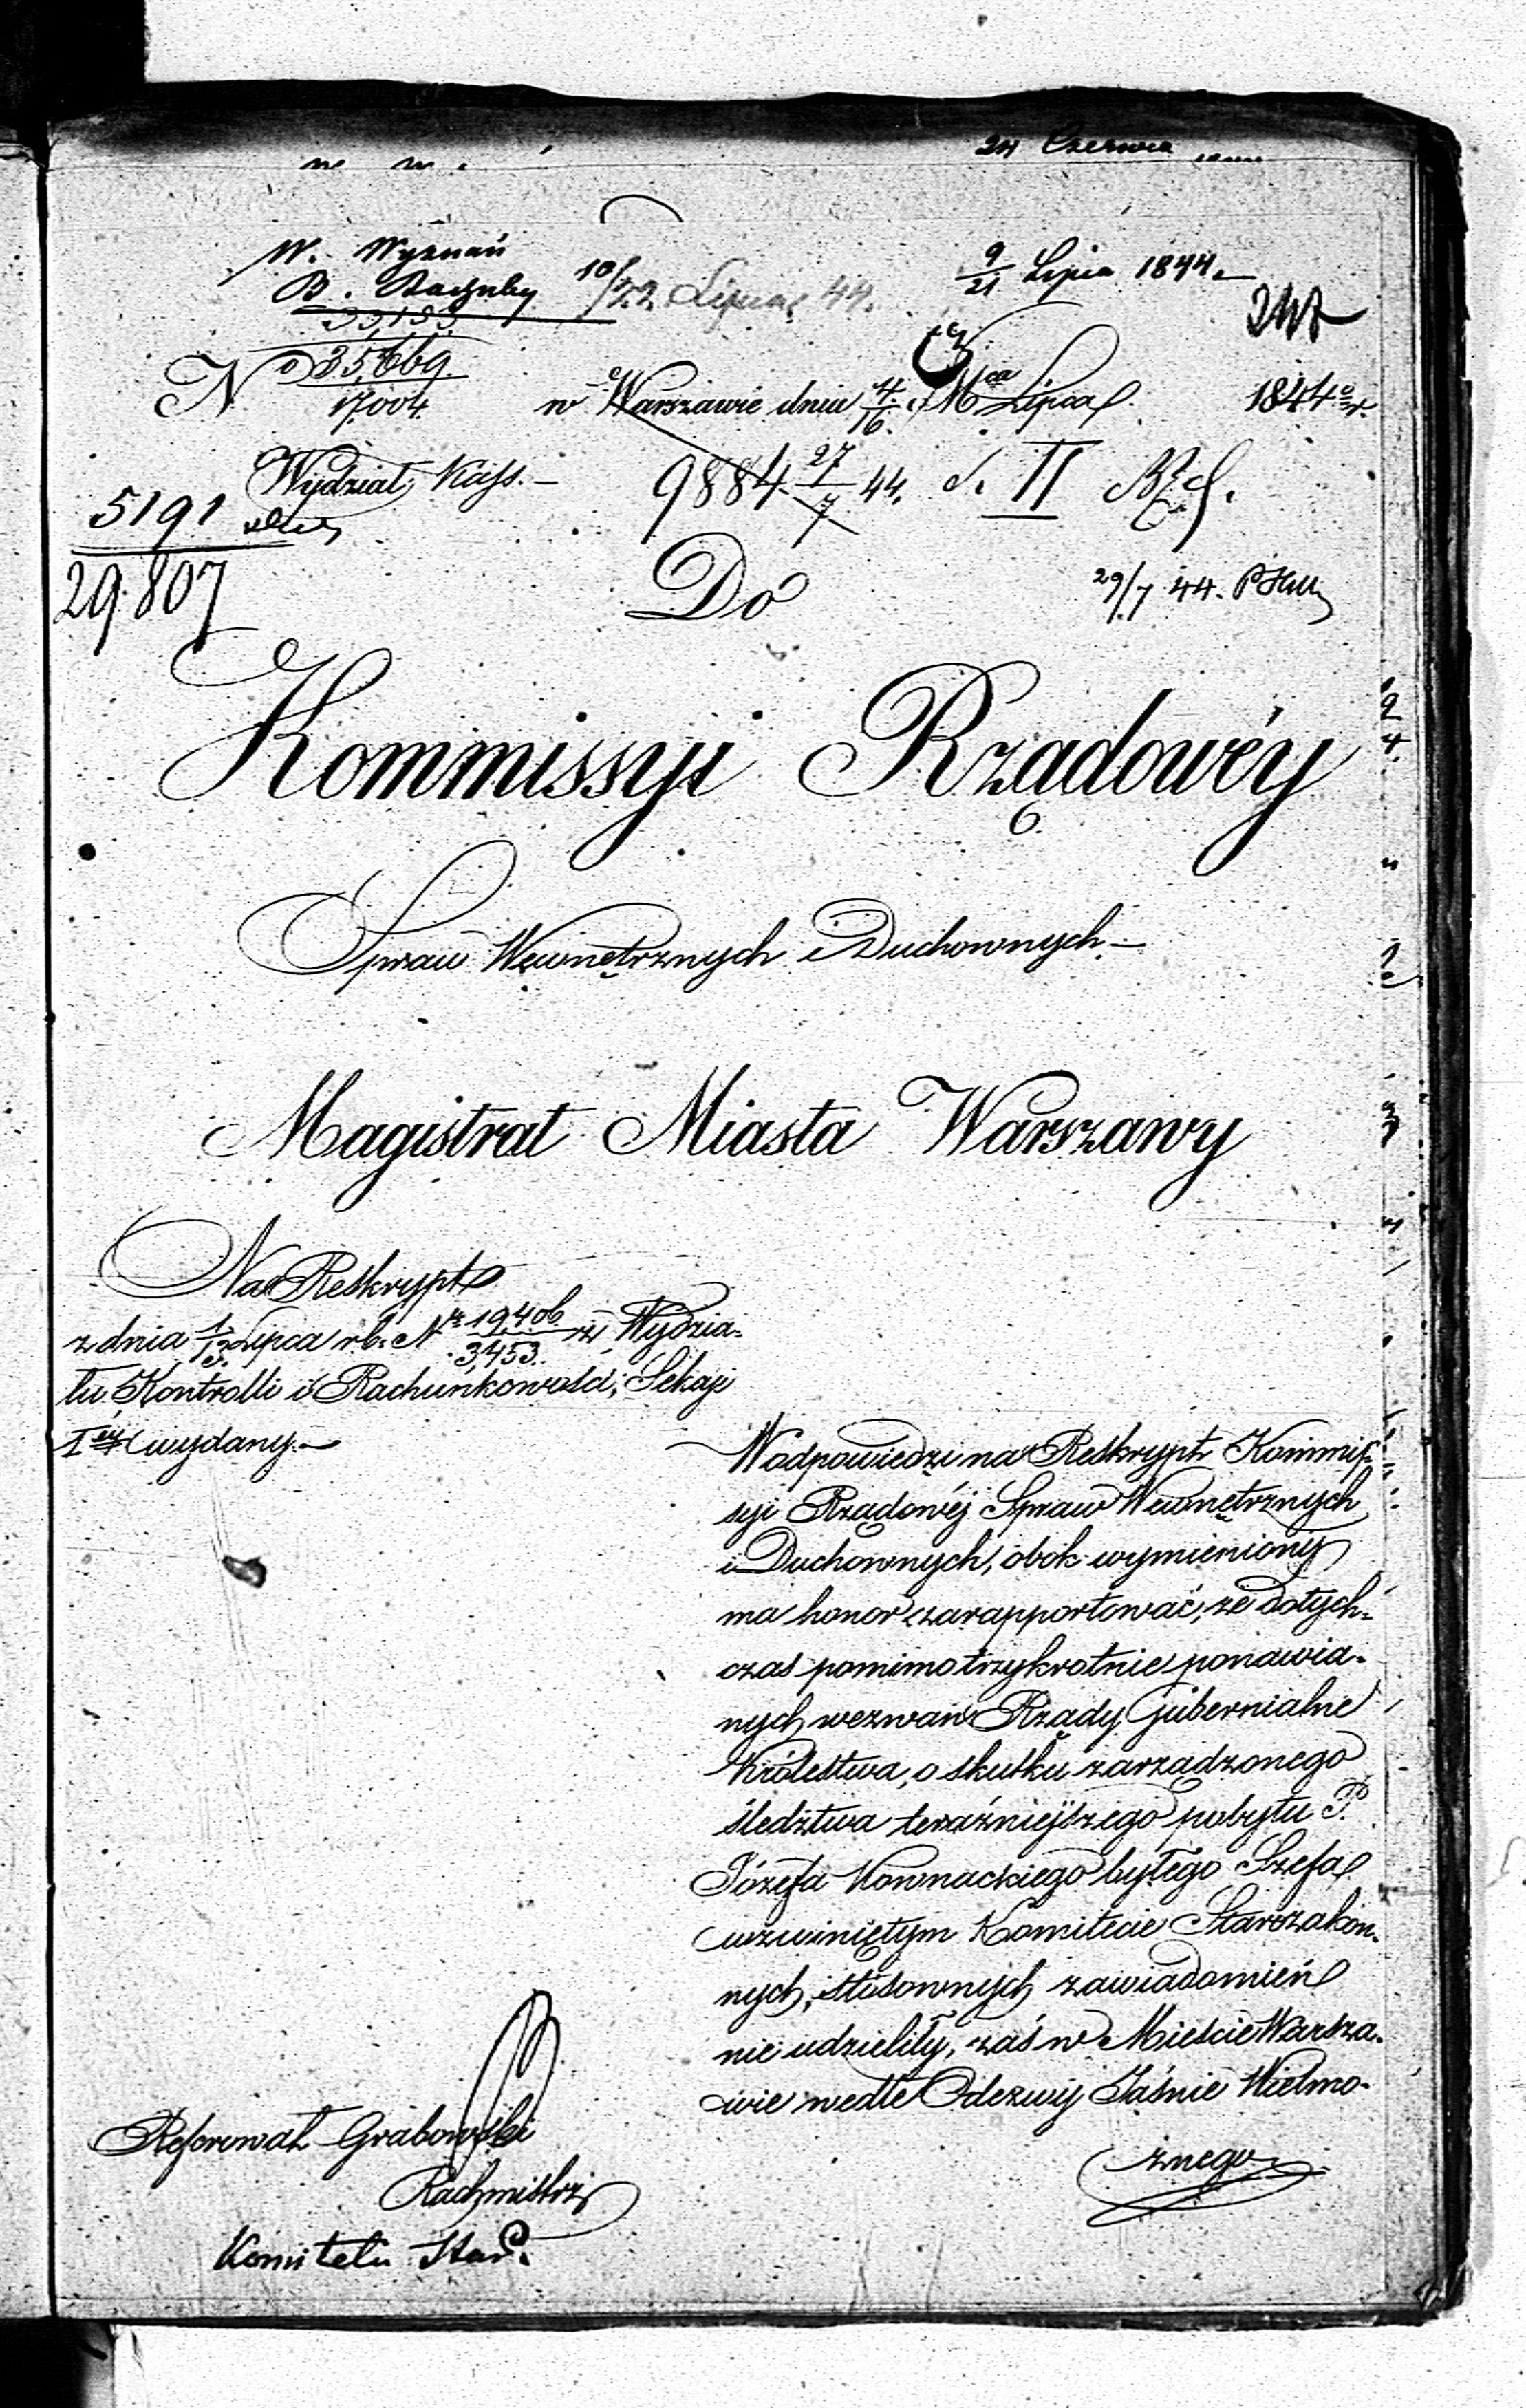 24 Czerwca
W. Wyznań
B. Rachuby
10/22 Lipca 44.
9/21 Lipca 1844.
247
33,183
No 35,669.
17,004
w Warszawie dnia 4/16. Mca Lipca 1844o r.
Wydział Kass.
9884 27/7 44. S. II
5191
29.807
29/7 44.
Do
Kommissyi Rządowéy
Spraw Wewnętrznych i Duchownych.
Magistrat Miasta Warszawy
Na Reskrypt
z dnia 1/13. Lipca r.b. Nr 19,406/3,453. z Wydzia-
łu Kontrolli i Rachunkowości, Sekcji
Iéy wydany.
W odpowiedzi na Reskrypt Kommis-
syi Rządowéj Spraw Wewnętrznych
i Duchownych, obok wymieniony
ma honor zarapportować, że dotych-
czas pomimo trzykrotnie ponawia-
nych wezwań Rządy Gubernialne
Królestwa, o skutku zarządzonego
śledztwa teraźniejszego pobytu P.
Józefa Kownackiego byłego Szefa
w zwiniętym Komitecie Starozakon-
nych, stosownych zawiadomień
nie udzieliły, zaś w Mieście Warsza-
wie wedle Odezwy Jaśnie Wielmo-
żnego
Referował Grabowski
Rachmistrz
Komitetu Star.